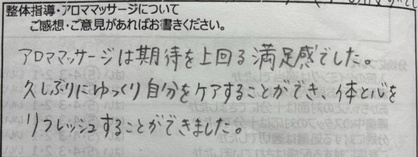 整体指導・アロママッサージについて
ご感想・ご意見があればお書きください。
アロママッサージは期待を上回る満足感でした。
久しぶりにゆっくり自分をケアすることができ、体と心を
リフレッシュすることができました。